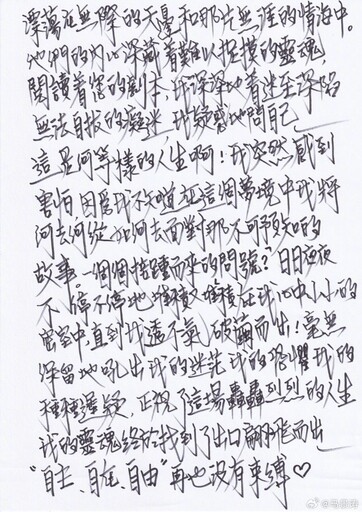 漂蕩在無際的天邊和那片無涯的情海中。
他們的內心深藏着難以捉摸的靈魂，
閱讀着您的劇本，我深深地着迷至深陷
無法自拔的癡迷，我疑惑地問自己
這是何等樣的人生啊！我突然感到
害怕因為我不知道在這個夢境中我將
何去何從如何去面對那不可預知的
故事。一個個接踵而來的問號？日日夜夜
不停不停地堆積、堆積在我心中小小的
密室中，直到我透不氣破繭而出！毫無
保留地吼出我的迷茫我的恐懼我的
種種遲疑，正視了這場轟轟烈烈的人生
我的靈魂終於找到了出口翩翩飛而出
“自主、自在、自由”再也沒有束縛♡